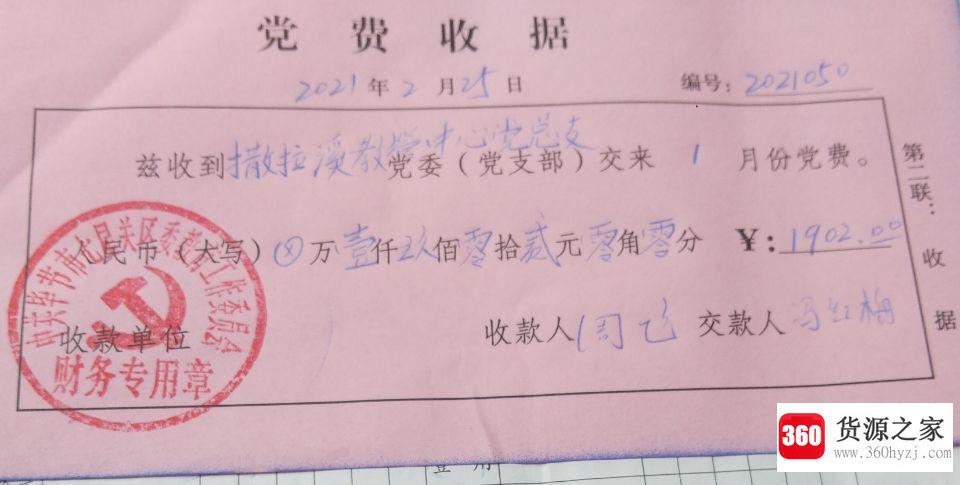 党费收据
2021年2月25日 编号：2021050
兹收到撒拉溪教管中心党总支党委（党支部）交来 1 月份党费。
人民币（大写）⊗万壹仟玖佰零拾贰元零角零分 ￥：1902.00
收款单位 收款人 周飞 交款人 冯红梅
第二联：收据
中共毕节市七星关区委教育工作委员会
财务专用章
登 用
360 货源之家
www.360hyzj.com